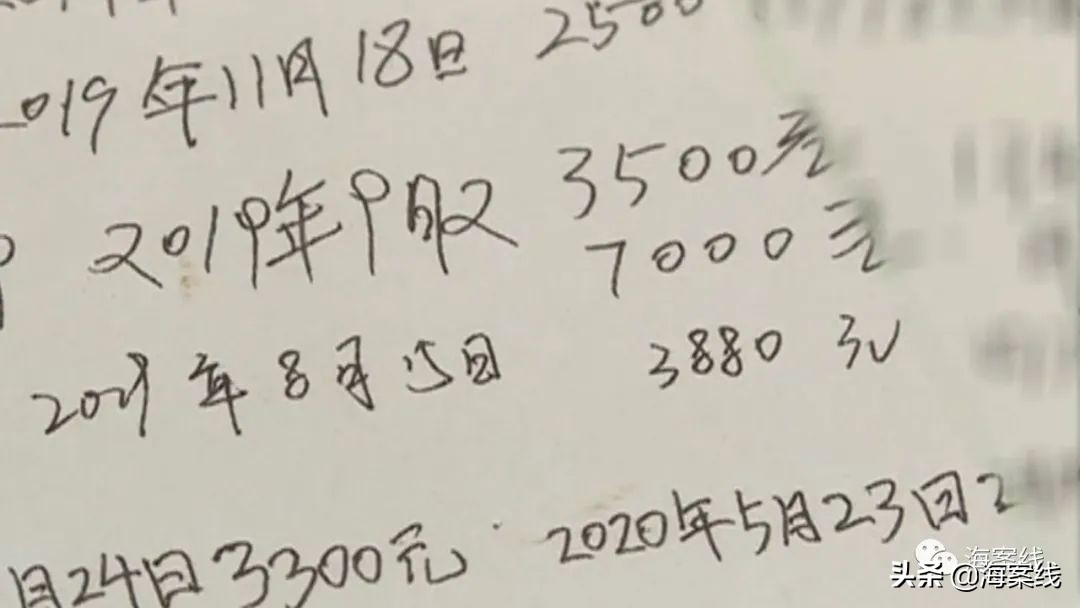 2019年11月18日 2500
2019年9月收 3500元
7000元
2019年8月15日 3880元
月24日3300元 2020年5月23日2
海案线
头条 @海案线